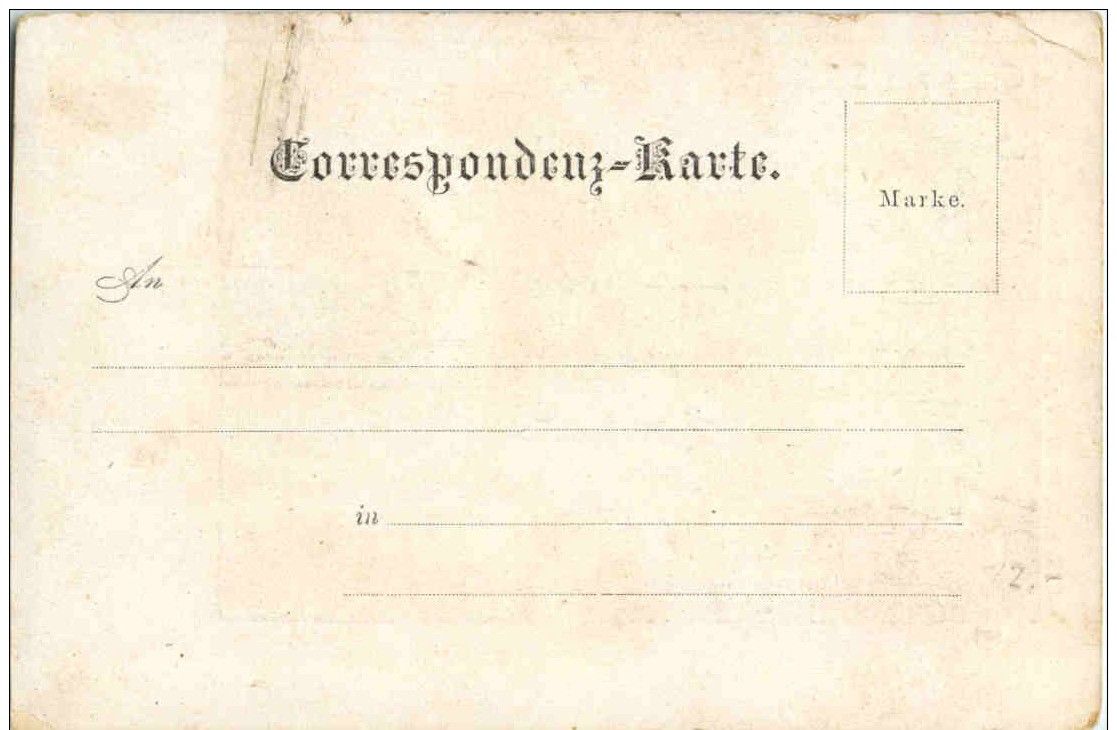 Correspondenz-Karte.
Marke.
An
in
2.-